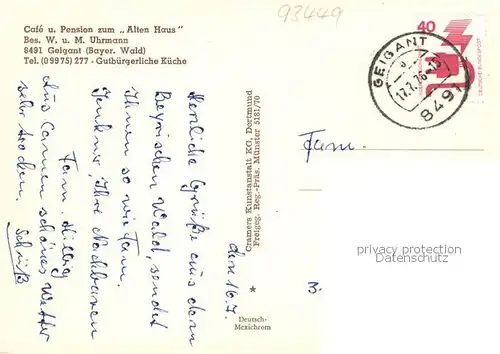 93449
Café u. Pension zum „Alten Haus"
Bes. W. u. M. Uhrmann
8491 Geigant (Bayer. Wald)
Tel. (0 99 75) 277 - Gutbürgerliche Küche
40
DEUTSCHE BUNDESPOST
GEIGANT
a
17.7.76-13
8491
Fam.
den 16.7.
Herzliche Grüße aus dem
Bayrischen Wald, sendet
Ihnen so wie Fam.
Ihre Nachbaren
Fam.
aus Camen schönes Wetter
sehr trocken.
Cramers Kunstanstalt KG, Dortmund
Freigeg. Reg.-Präs. Münster 5181/70
*
Deutsch-
Mexichrom
privacy protection
watermark